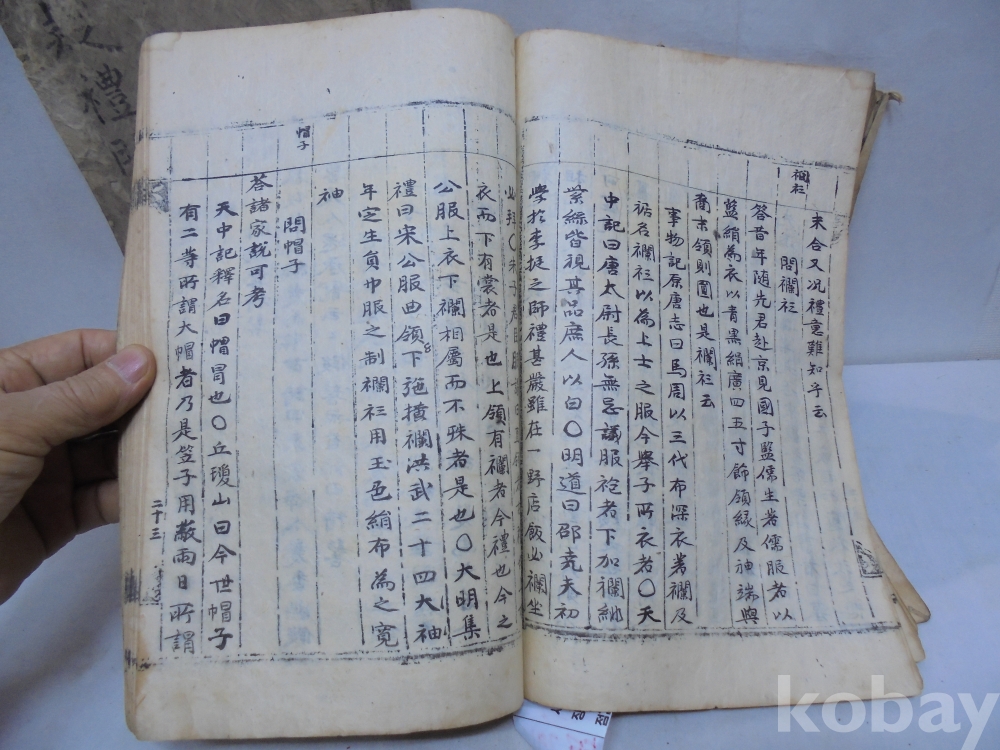 未合又况禮意難知乎云
襴衫
問襴衫
答昔年随先君赴京見國子監儒生着儒服者以
藍絹為衣以青黑絹廣四五寸飾領緣及袖端與
裔末領則圓也是襴衫云
事物記原唐志曰馬周以三代布深衣着襴及
裾名襴衫以為上士之服今舉子所衣者〇天
中記曰唐太尉長孫無忌議服袍者下加襴紕
紫綠皆視其品庶人以白〇明道曰邵堯夫初
學扵李挺之師禮甚嚴雖在一野店飯必襴坐
必拜〇朱子
衣而下有裳者是也上領有襴者今禮也今之
公服上衣下襴相屬而不殊者是也〇大明集
禮曰宋公服曲領下施橫襴洪武二十四大袖
年㝎生員巾服之制襴衫用玉色絹布為之寬
袖
帽子
問帽子
荅諸家說可考
天中記釋名曰帽冒也〇丘瓊山曰今世帽子
有二等所謂大帽者乃是笠子用蔽雨日所謂
二十三
禮
kobay